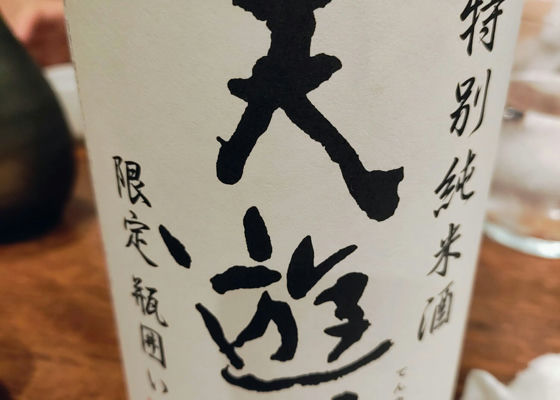 特別純米酒
天遊
てん
限定瓶囲い